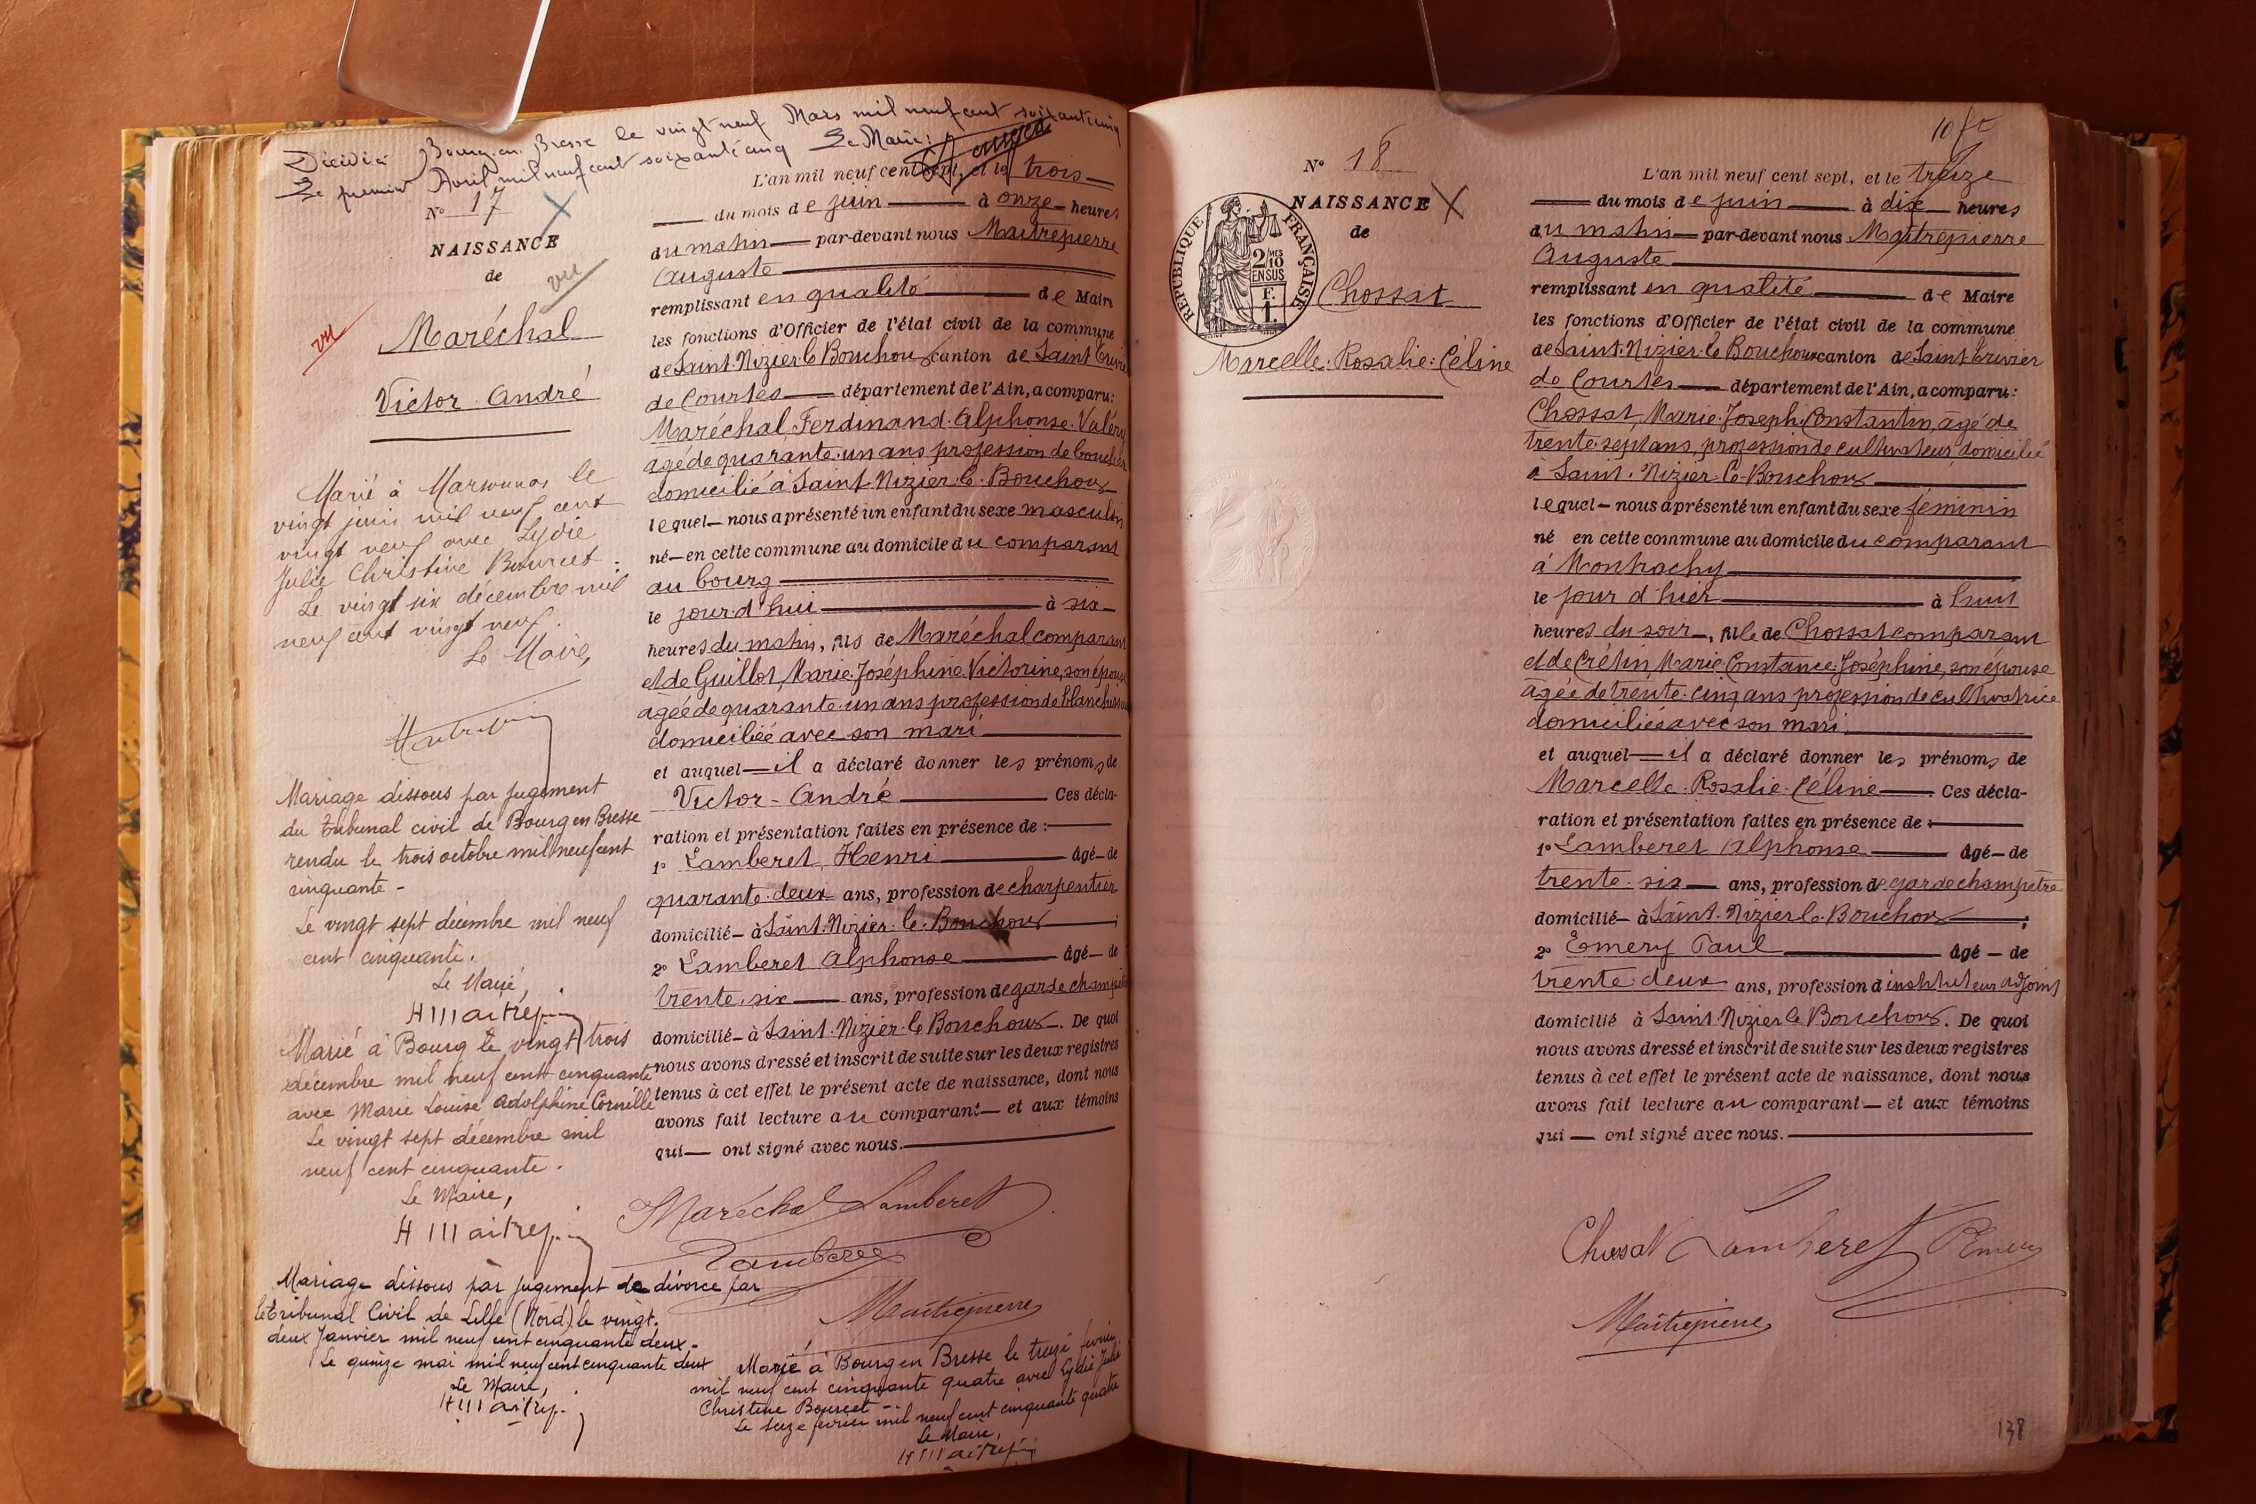 Décédé à Bourg en Bresse le vingt neuf Mars mil neuf cent soixante cinq
Le premier Avril mil neuf cent soixante cinq Le Maire:
N° 17
NAISSANCE
de
vu
vu
Maréchal
Victor André
Marié à Marsonnas le
vingt juin mil neuf cent
vingt neuf avec Lydie
Julie Christine Bourcet.
Le vingt six décembre mil
neuf cent vingt neuf.
Le Maire,
Mariage dissous par jugement
du tribunal civil de Bourg en Bresse
rendu le trois octobre mil neuf cent
cinquante -
Le vingt sept décembre mil neuf
cent cinquante.
Le Maire,
Marié à Bourg le vingt trois
décembre mil neuf cent cinquante
avec Marie Louise Adolphine Cornille
Le vingt sept décembre mil
neuf cent cinquante.
Le Maire,
Mariage dissous par jugement de divorce par
le tribunal Civil de Lille (Nord) le vingt.
deux Janvier mil neuf cent cinquante deux.
Le quinze mai mil neuf cent cinquante deux
Le Maire,
L'an mil neuf cent sept, et le trois
du mois de juin à onze heures
du matin par-devant nous Maitrepierre
Auguste
remplissant en qualité de Maire
les fonctions d'Officier de l'état civil de la commune
de Saint-Nizier-le Bouchoux canton de Saint Trivier
de Courtes département de l'Ain, a comparu:
Maréchal, Ferdinand-Alphonse-Valéry
agé de quarante-un ans profession de boucher
domicilié à Saint-Nizier-le-Bouchoux
lequel nous a présenté un enfant du sexe masculin
né en cette commune au domicile du comparant
au bourg
le jour d'hui à six
heures du matin, fils de Maréchal comparant
et de Guillot, Marie-Joséphine Victorine, son épouse
agée de quarante-un ans profession de blanchisseuse
domiciliée avec son mari
et auquel il a déclaré donner les prénoms de
Victor-André Ces décla-
ration et présentation faites en présence de:
1° Lamberet, Henri âgé de
quarante-deux ans, profession de charpentier
domicilié à Saint-Nizier-le-Bouchoux;
2° Lamberet Alphonse âgé de
trente-six ans, profession de garde champêtre
domicilié à Saint-Nizier-le Bouchoux. De quoi
nous avons dressé et inscrit de suite sur les deux registres
tenus à cet effet le présent acte de naissance, dont nous
avons fait lecture au comparant et aux témoins
qui ont signé avec nous.
Maréchal Lamberet
Lamberet
Maitrepierre
Marié à Bourg en Bresse le treize février
mil neuf cent cinquante quatre avec Lydie Julie
Christine Bourcet
Le seize février mil neuf cent cinquante quatre
Le Maire,
N° 18
NAISSANCE
de
RÉPUBLIQUE FRANÇAISE
2/10 MES
EN SUS
F.
1.
Chossat
Marcelle-Rosalie-Céline
L'an mil neuf cent sept, et le treize
du mois de juin à dix heures
du matin par-devant nous Maitrepierre
Auguste
remplissant en qualité de Maire
les fonctions d'Officier de l'état civil de la commune
de Saint-Nizier-le Bouchoux canton de Saint Trivier
de Courtes département de l'Ain, a comparu:
Chossat, Marie-Joseph Constantin, agé de
trente-sept ans, profession de cultivateur domicilié
à Saint-Nizier-le-Bouchoux
lequel nous a présenté un enfant du sexe féminin
né en cette commune au domicile du comparant
à Montrachy
le jour d'hier à huit
heures du soir, fille de Chossat comparant
et de Crétin, Marie-Constance Joséphine, son épouse
agée de trente-cinq ans profession de cultivatrice
domiciliée avec son mari
et auquel il a déclaré donner les prénoms de
Marcelle-Rosalie-Céline. Ces décla-
ration et présentation faites en présence de:
1° Lamberet Alphonse âgé de
trente-six ans, profession de garde champêtre
domicilié à Saint-Nizier le-Bouchoux;
2° Emery Paul âgé de
trente deux ans, profession d instituteur adjoint
domicilié à Saint-Nizier le Bouchoux. De quoi
nous avons dressé et inscrit de suite sur les deux registres
tenus à cet effet le présent acte de naissance, dont nous
avons fait lecture au comparant et aux témoins
qui ont signé avec nous.
Chossat Lamberet Emery
Maitrepierre
138